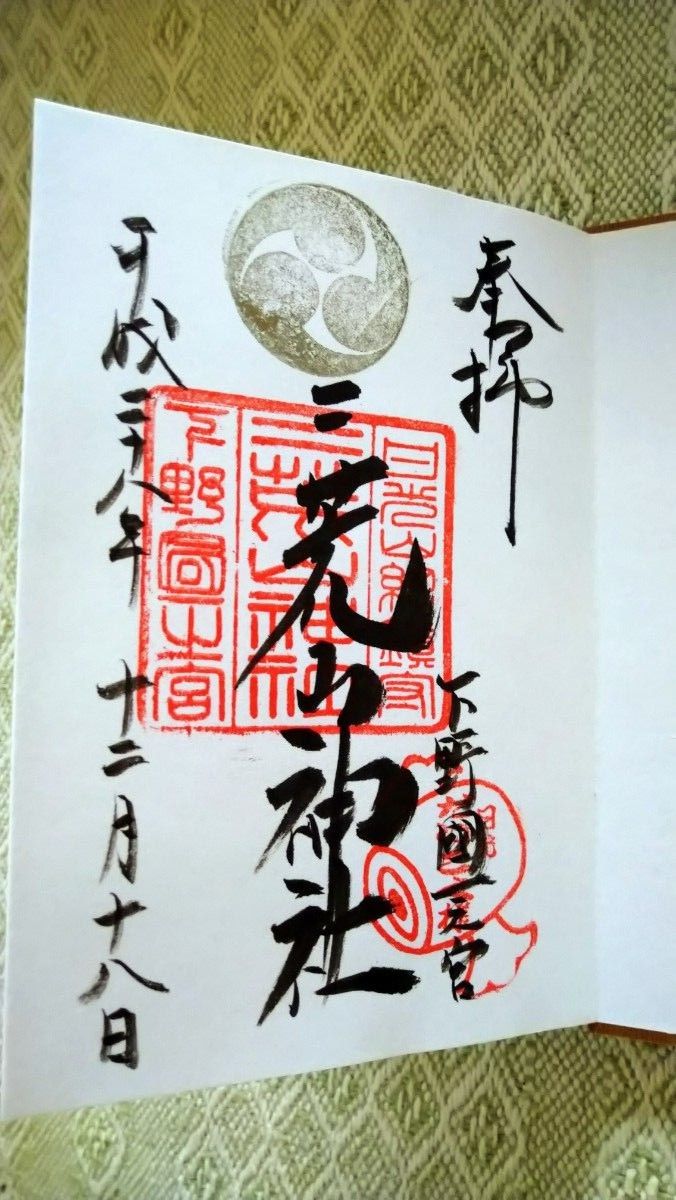 奉拝
下野國一之宮
二荒山神社
平成二十八年 十二月十八日
日光山総鎮守
二荒山神社
下野國一宮